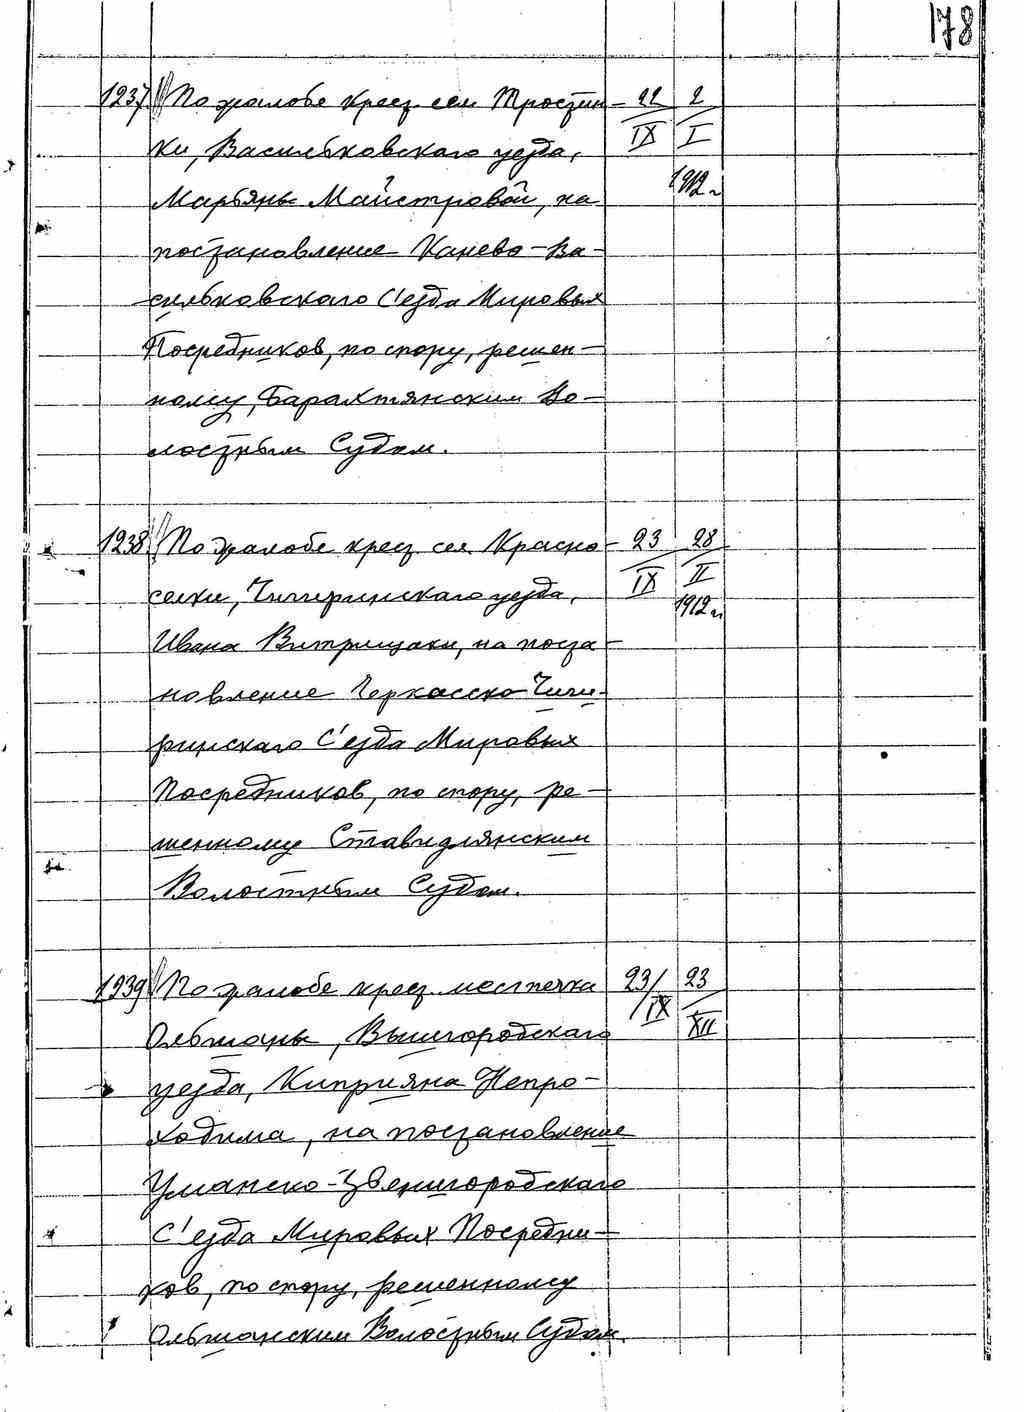 178
1237 По жалобе крест. сел. Тростин- 22 2
ки, Васильковскаго уезда, IX I
Марьяны Майстровой, на 1912 г.
постановление Канево-Ва-
сильковскаго С'езда Мировых
Посредников, по спору, решен-
ному, Барахтянским Во-
лостным Судом.
1238 По жалобе крест. сел. Красно- 23 28
селки, Чигиринскаго уезда, IX II
1912 г.
Ивана Витрищаки, на поста-
новление Черкасско-Чиги-
ринскаго С'езда Мировых
Посредников, по спору, ре-
шенному Ставидлянским
Волостным Судом.
1239 По жалобе крест. местечка 23/IX 23
Ольшаны, Вышгородскаго XII
уезда, Киприяна Непро-
ходима, на постановление
Уманско-Звенигородскаго
С'езда Мировых Посредни-
ков, по спору, решенному
Ольшанским Волостным Судом.